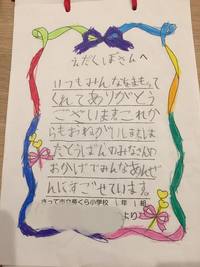 えだくぼさんへ
いつもみんなをまもって
くれてありがとう
ございます。これか
らもおねがいします。
たとうばんのみなさんの
おかげでみんなあんぜ
んにすごせています。
さって市立
くら小学校 1年1組
より